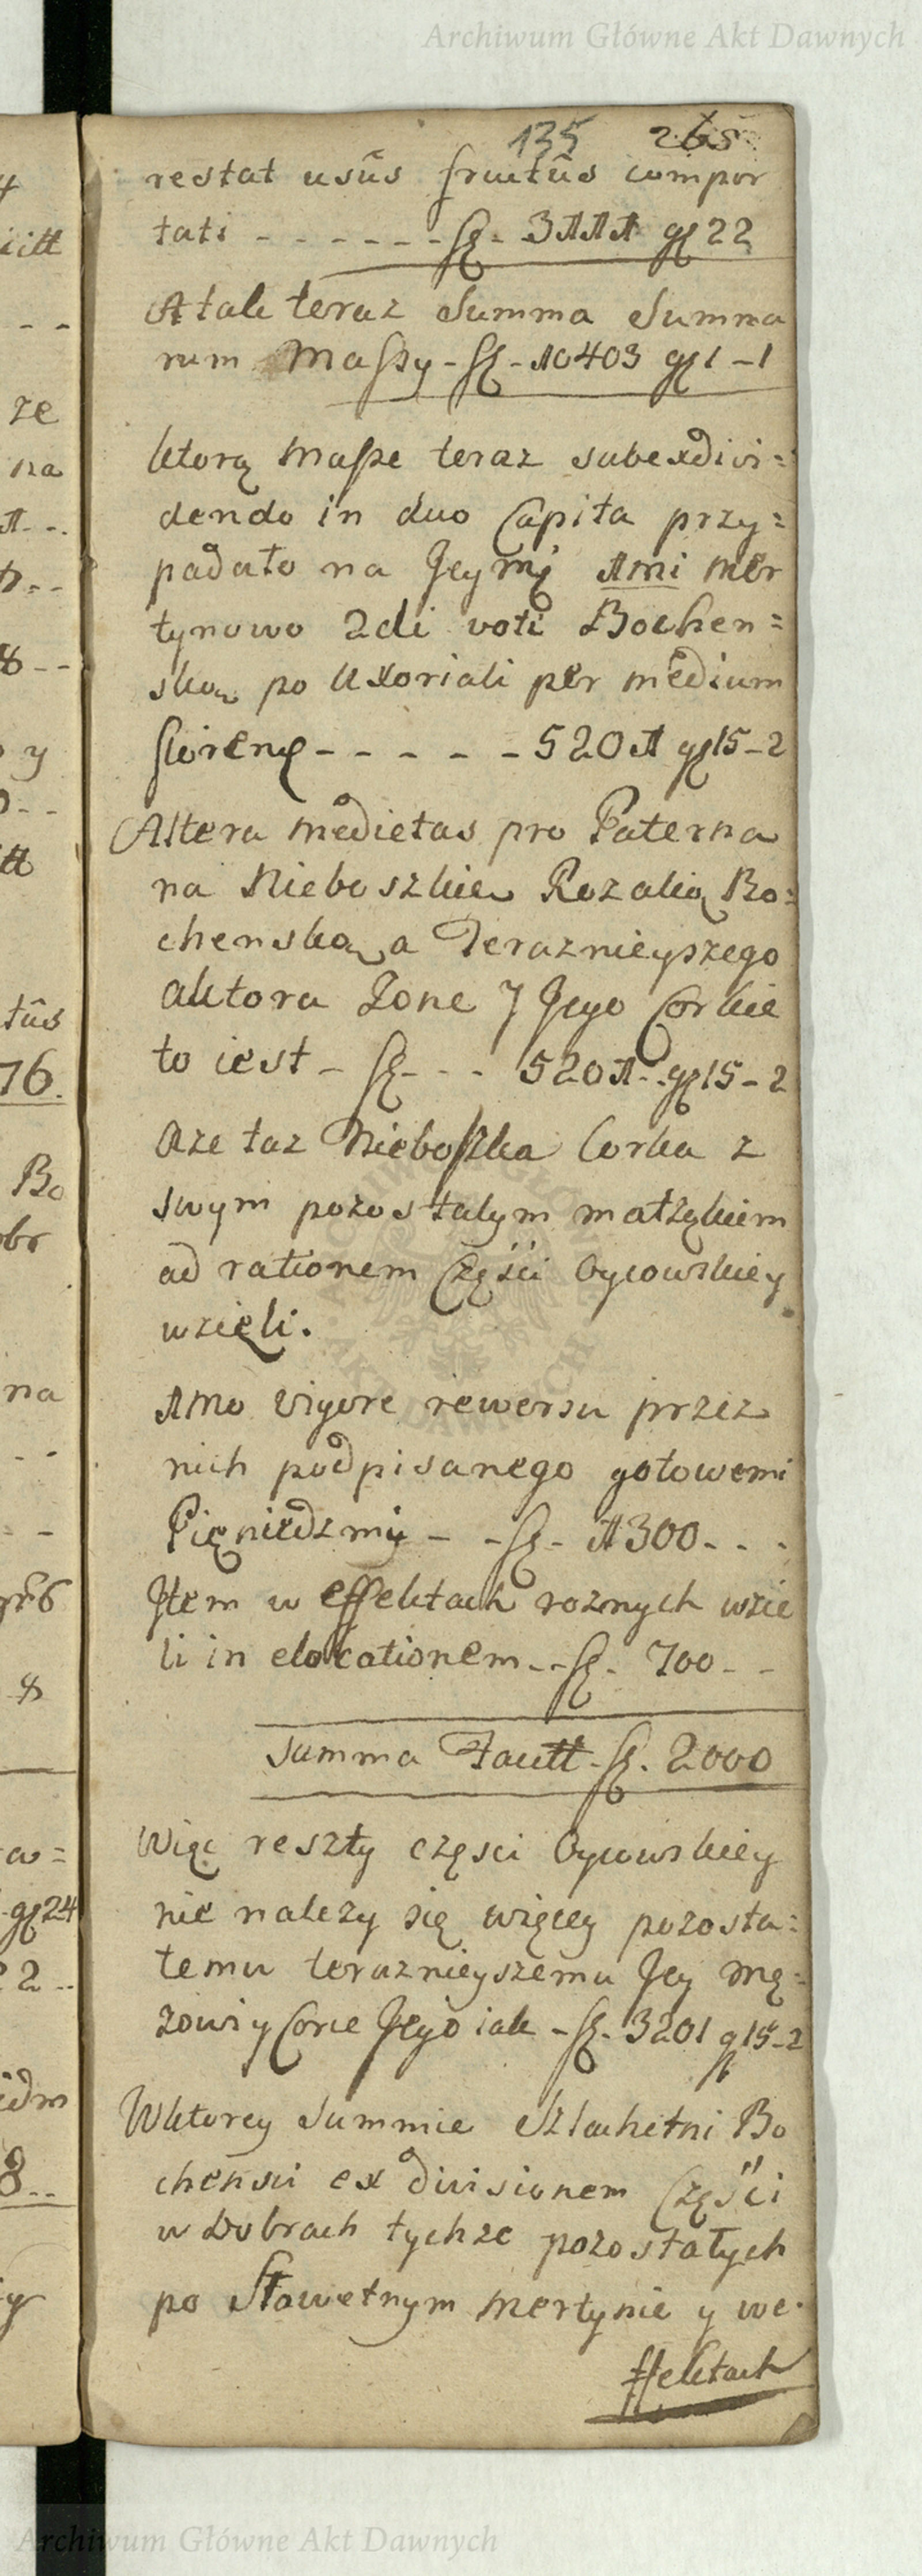 Archiwum Główne Akt Dawnych
135 265
restat usûs fructûs compor
tati - - - - - - fl. - 3111 gl 22
A tak teraz Summa Summa
rum Massy - fl - 10403 gl 1 - 1
ktorą Massę teraz subexdivi=
dendo in duo Capita przy=
padało na Jeymę 1mi Mer
tynowo 2di voti Bochen=
ską po Uxoriali per medium
- - - - - 5201 gl 15 - 2
Altera medietas pro Paterna
na Nieboszkie Rozalią Bo=
chenską a Teraznieyszego
aktora Zone y Jego Corkie
to iest - fl - - - 5201 - gl 15 - 2
Aze taz Nieboszka Corka z
swym pozostalym małzękiem
ad rationem Części Oycowskiey
wzieli.
1mo vigore rewersu przez
nich podpisanego gotowemi
Pięniedzmi - - fl - 1300 - - -
Jtem w effektach roznych wzie
li in elocationem - - fl - 700 - -
Summa Facitt - fl. 2000
Więc reszty części Oycowskiey
nie nalezy się więcey pozosta=
temu teraznieyszemu Jey Mę=
zowi y Corce Jego iak - fl - 3201 g 15 - 2
Wktorey Summie Szlachetni Bo
chenscy ex divisionem Części
w Dobrach tychze pozostałych
po Sławetnym Mertynie y we
ffektach
Archiwum Główne Akt Dawnych